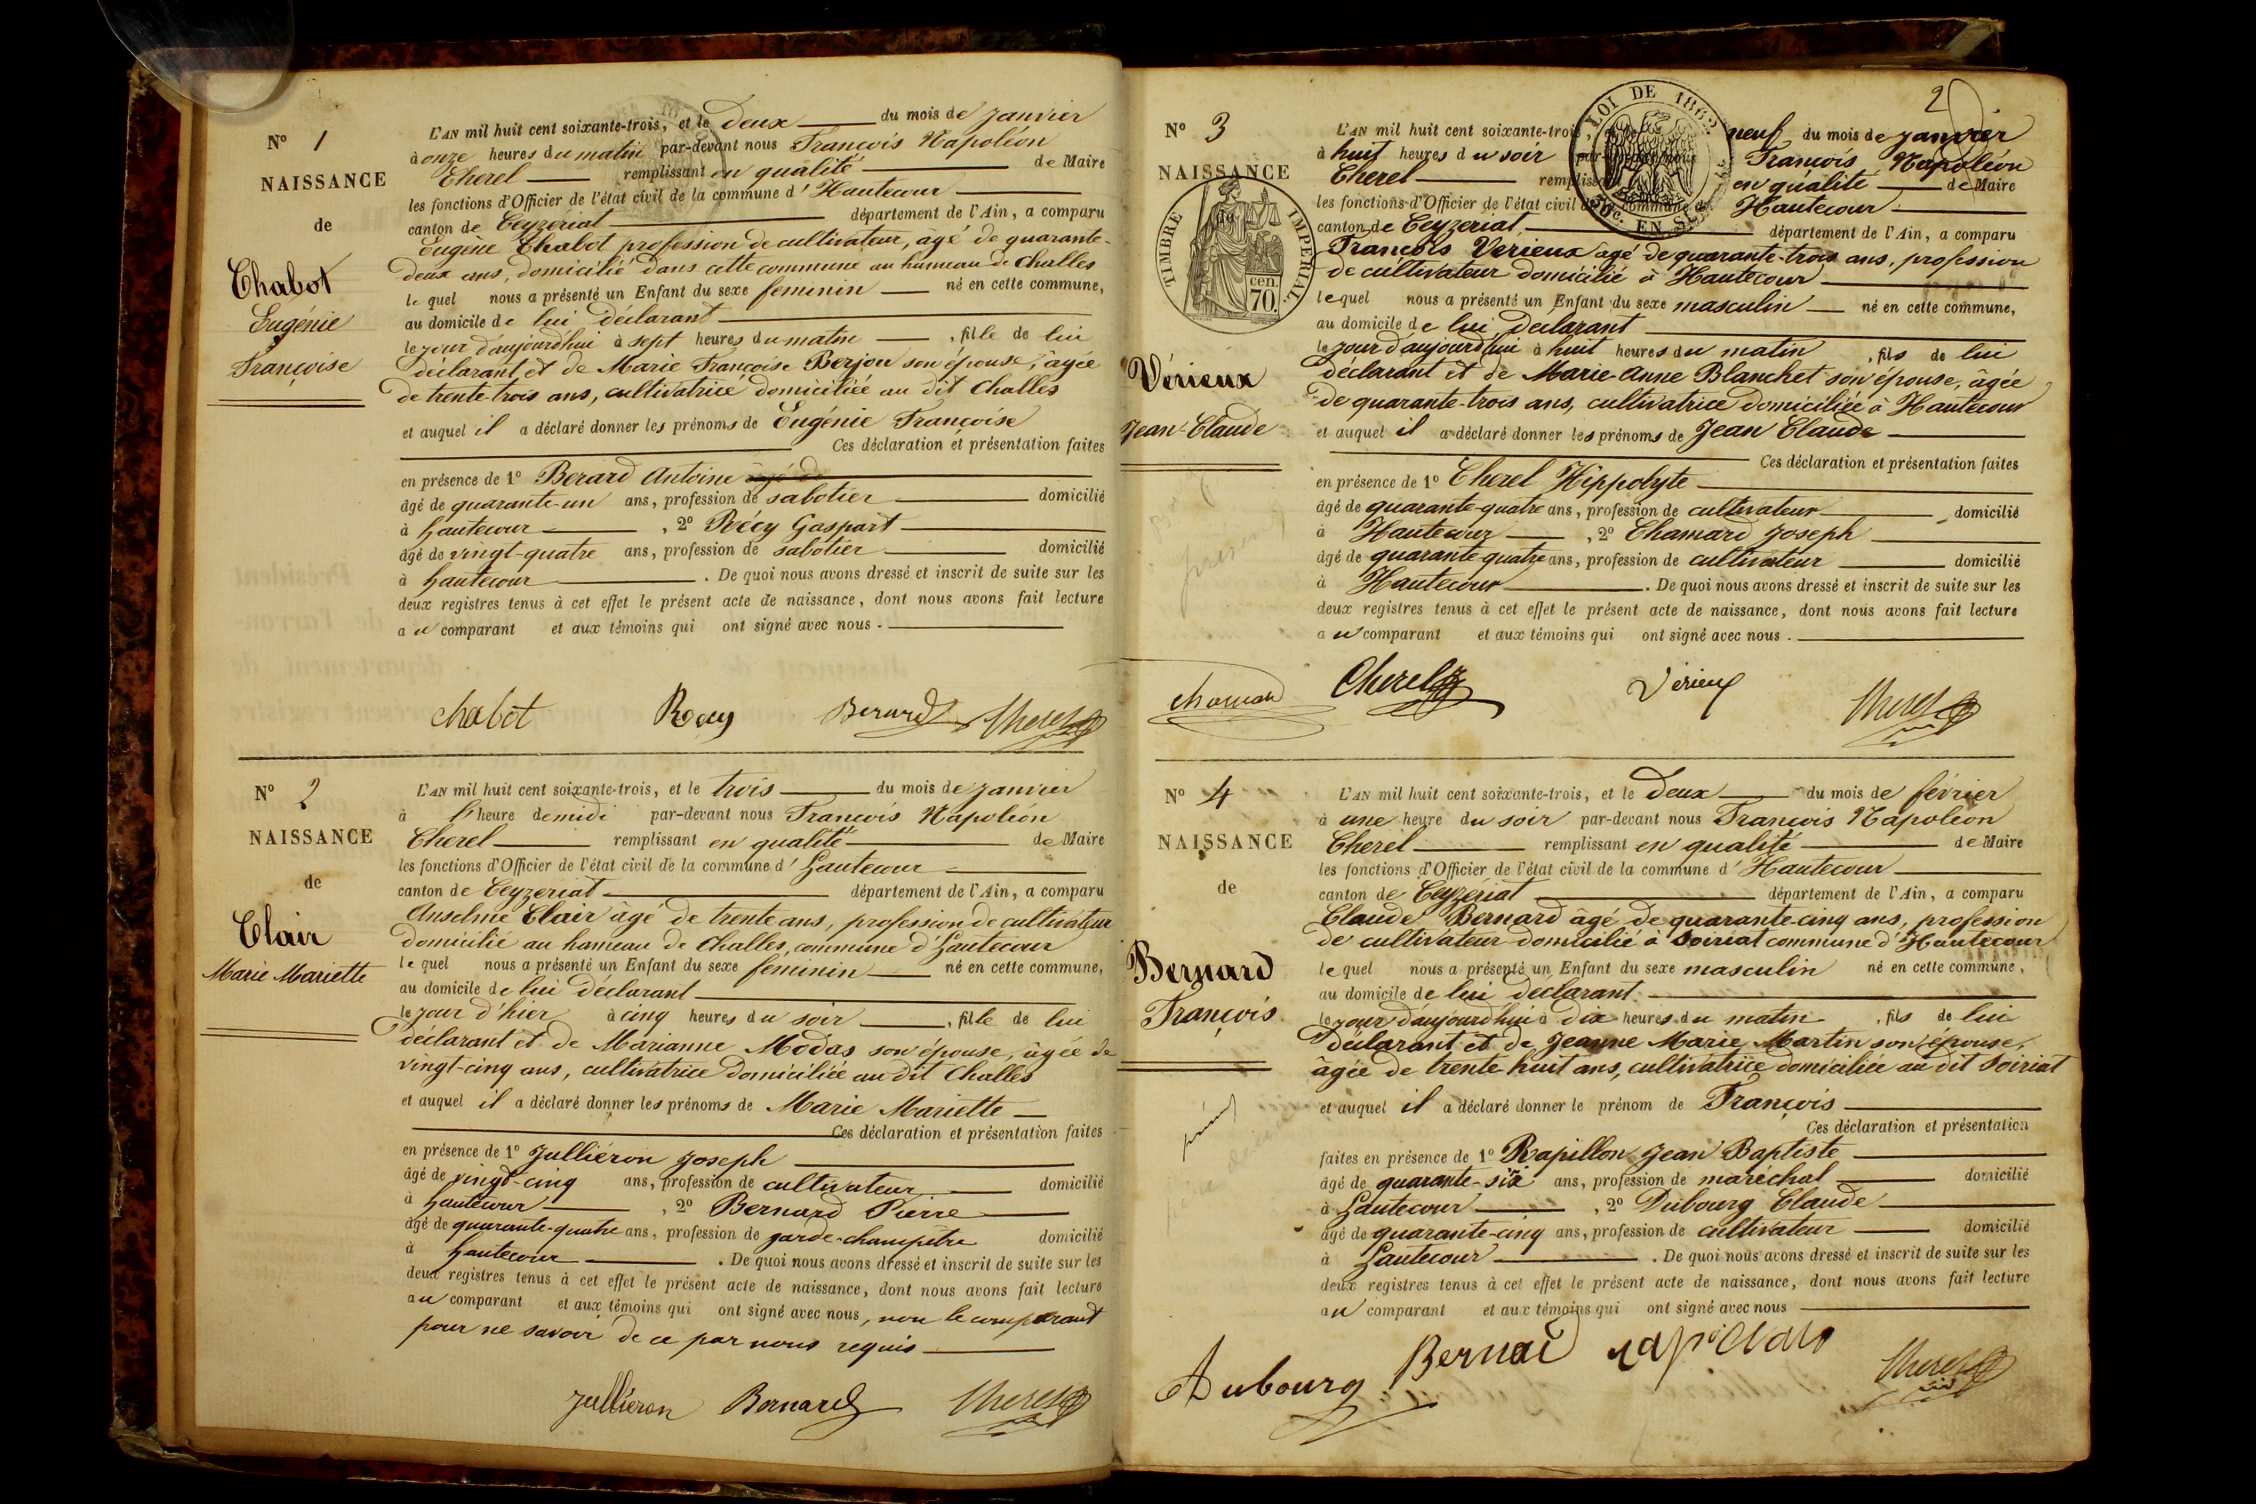 N° 1
NAISSANCE
de
Chabot
Eugénie
Françoise
L'AN mil huit cent soixante-trois, et le deux du mois de janvier
à onze heures du matin par-devant nous François Napoléon
Cherel remplissant en qualité de Maire
les fonctions d'Officier de l'état civil de la commune d'Hautecour
canton de Ceyzeriat département de l'Ain, a comparu
Eugène Chabot profession de cultivateur, âgé de quarante-
deux ans, domicilié dans cette commune au hameau de Challes
lequel nous a présenté un Enfant du sexe féminin né en cette commune,
au domicile de lui déclarant
le jour d'aujourd'hui à sept heures du matin, fille de lui
déclarant et de Marie Françoise Berjon son épouse, âgée
de trente-trois ans, cultivatrice domiciliée au dit Challes
et auquel il a déclaré donner les prénoms de Eugénie Françoise
Ces déclaration et présentation faites
en présence de 1° Berard Antoine âgé de
âgé de quarante-un ans, profession de sabotier domicilié
à hautecour, 2° Récy Gaspart
âgé de vingt-quatre ans, profession de sabotier domicilié
à hautecour. De quoi nous avons dressé et inscrit de suite sur les
deux registres tenus à cet effet le présent acte de naissance, dont nous avons fait lecture
au comparant et aux témoins qui ont signé avec nous.
chabot Recy Berard Cherel
N° 2
NAISSANCE
de
Clair
Marie Mariette
L'AN mil huit cent soixante-trois, et le trois du mois de janvier
à l'heure de midi par-devant nous François Napoléon
Cherel remplissant en qualité de Maire
les fonctions d'Officier de l'état civil de la commune d'hautecour
canton de Ceyzeriat département de l'Ain, a comparu
Anselme Clair âgé de trente ans, profession de cultivateur
domicilié au hameau de Challes, commune d'hautecour
lequel nous a présenté un Enfant du sexe féminin né en cette commune,
au domicile de lui déclarant
le jour d'hier à cinq heures du soir, fille de lui
déclarant et de Marianne Modas son épouse, âgée de
vingt-cinq ans, cultivatrice domiciliée au dit Challes
et auquel il a déclaré donner les prénoms de Marie Mariette
Ces déclaration et présentation faites
en présence de 1° Julliéron Joseph
âgé de vingt-cinq ans, profession de cultivateur domicilié
à hautecour, 2° Bernard Pierre
âgé de quarante-quatre ans, profession de garde-champêtre domicilié
à hautecour. De quoi nous avons dressé et inscrit de suite sur les
deux registres tenus à cet effet le présent acte de naissance, dont nous avons fait lecture
au comparant et aux témoins qui ont signé avec nous, non le comparant
pour ne savoir de ce par nous requis
Julliéron Bernard Cherel
2
N° 3
NAISSANCE
de
TIMBRE IMPÉRIAL
cen. 70.
LOI DE 1862
Vérieux
Jean-Claude
L'AN mil huit cent soixante-trois, et le neuf du mois de janvier
à huit heures du soir par-devant nous François Napoléon
Cherel remplissant en qualité de Maire
les fonctions d'Officier de l'état civil de la commune d'Hautecour
canton de Ceyzériat département de l'Ain, a comparu
François Verieux âgé de quarante-trois ans, profession
de cultivateur domicilié à Hautecour
lequel nous a présenté un Enfant du sexe masculin né en cette commune,
au domicile de lui déclarant
le jour d'aujourd'hui à huit heures du matin, fils de lui
déclarant et de Marie-Anne Blanchet son épouse, âgée
de quarante-trois ans, cultivatrice domiciliée à Hautecour
et auquel il a déclaré donner les prénoms de Jean Claude
Ces déclaration et présentation faites
en présence de 1° Cherel Hippolyte
âgé de quarante-quatre ans, profession de cultivateur domicilié
à Hautecour, 2° Chamard Joseph
âgé de quarante-quatre ans, profession de cultivateur domicilié
à Hautecour. De quoi nous avons dressé et inscrit de suite sur les
deux registres tenus à cet effet le présent acte de naissance, dont nous avons fait lecture
au comparant et aux témoins qui ont signé avec nous.
chamard Cherel Vérieux Cherel
N° 4
NAISSANCE
de
Bernard
François
L'AN mil huit cent soixante-trois, et le deux du mois de février
à une heure du soir par-devant nous François Napoléon
Cherel remplissant en qualité de Maire
les fonctions d'Officier de l'état civil de la commune d'Hautecour
canton de Ceyzériat département de l'Ain, a comparu
Claude Bernard âgé de quarante-cinq ans, profession
de cultivateur domicilié à Soiriat commune d'Hautecour
lequel nous a présenté un Enfant du sexe masculin né en cette commune,
au domicile de lui déclarant
le jour d'aujourd'hui à dix heures du matin, fils de lui
déclarant et de Jeanne Marie Martin son épouse,
âgée de trente huit ans, cultivatrice domiciliée au dit Soiriat
et auquel il a déclaré donner le prénom de François
Ces déclaration et présentation
faites en présence de 1° Rapillon Jean Baptiste
âgé de quarante-six ans, profession de maréchal domicilié
à hautecour, 2° Dubourg Claude
âgé de quarante-cinq ans, profession de cultivateur domicilié
à hautecour. De quoi nous avons dressé et inscrit de suite sur les
deux registres tenus à cet effet le présent acte de naissance, dont nous avons fait lecture
au comparant et aux témoins qui ont signé avec nous
Dubourg Bernard rapillon Cherel